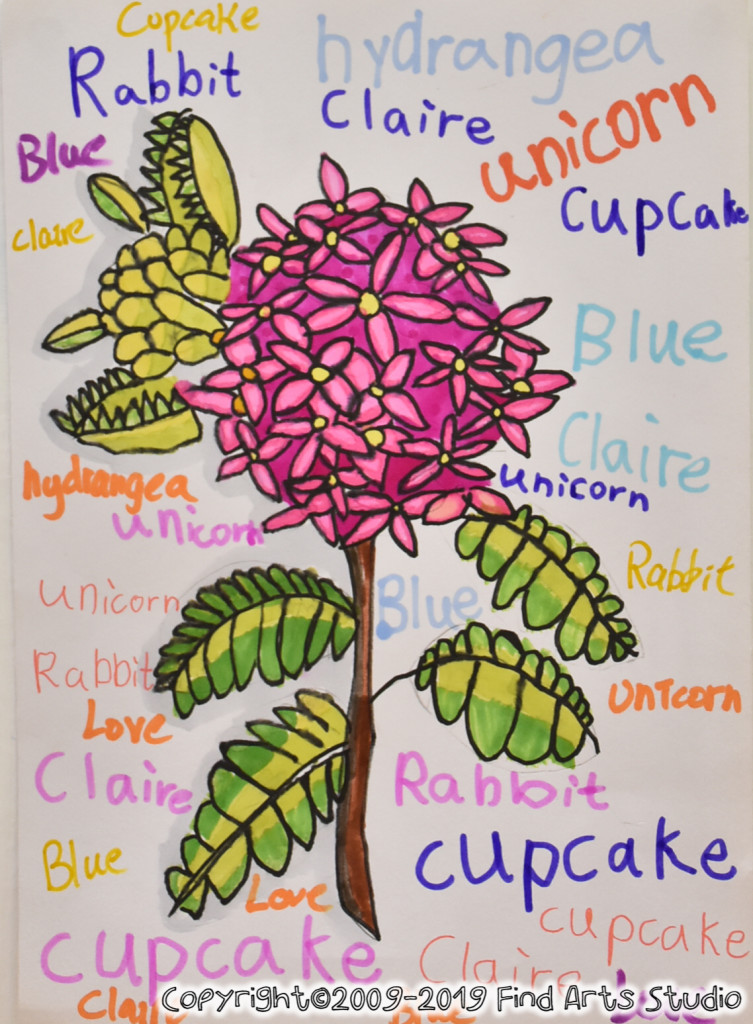 Cupcake
hydrangea
Rabbit
Claire
unicorn
Blue
Cupcake
claire
Blue
Claire
hydrangea
unicorn
unicorn
Rabbit
unicorn
Blue
Rabbit
Love
unicorn
Claire
Rabbit
Blue
cupcake
Love
cupcake
cupcake
Claire
Claire
Copyright©2009-2019 Find Arts Studio